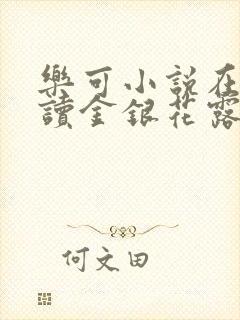 樂可小說在
讀金銀花露
何文田